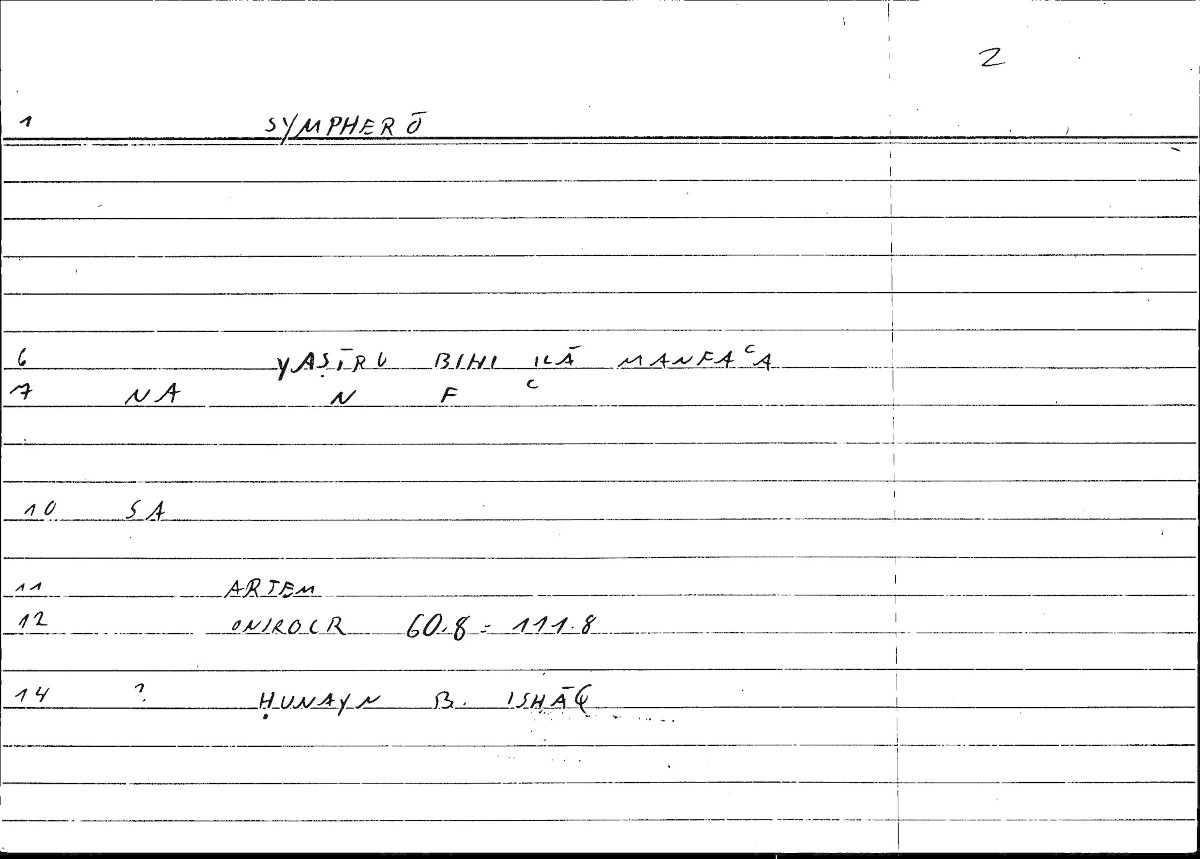 2
1 SYMPHERŌ
6 YAṢĪRU BIHI ILĀ MANFAᶜA
7 NA N F ᶜ
10 SA
11 ARTEM
12 ONIROCR 60.8 = 111.8
14 ? ḤUNAYN B. ISHĀQ